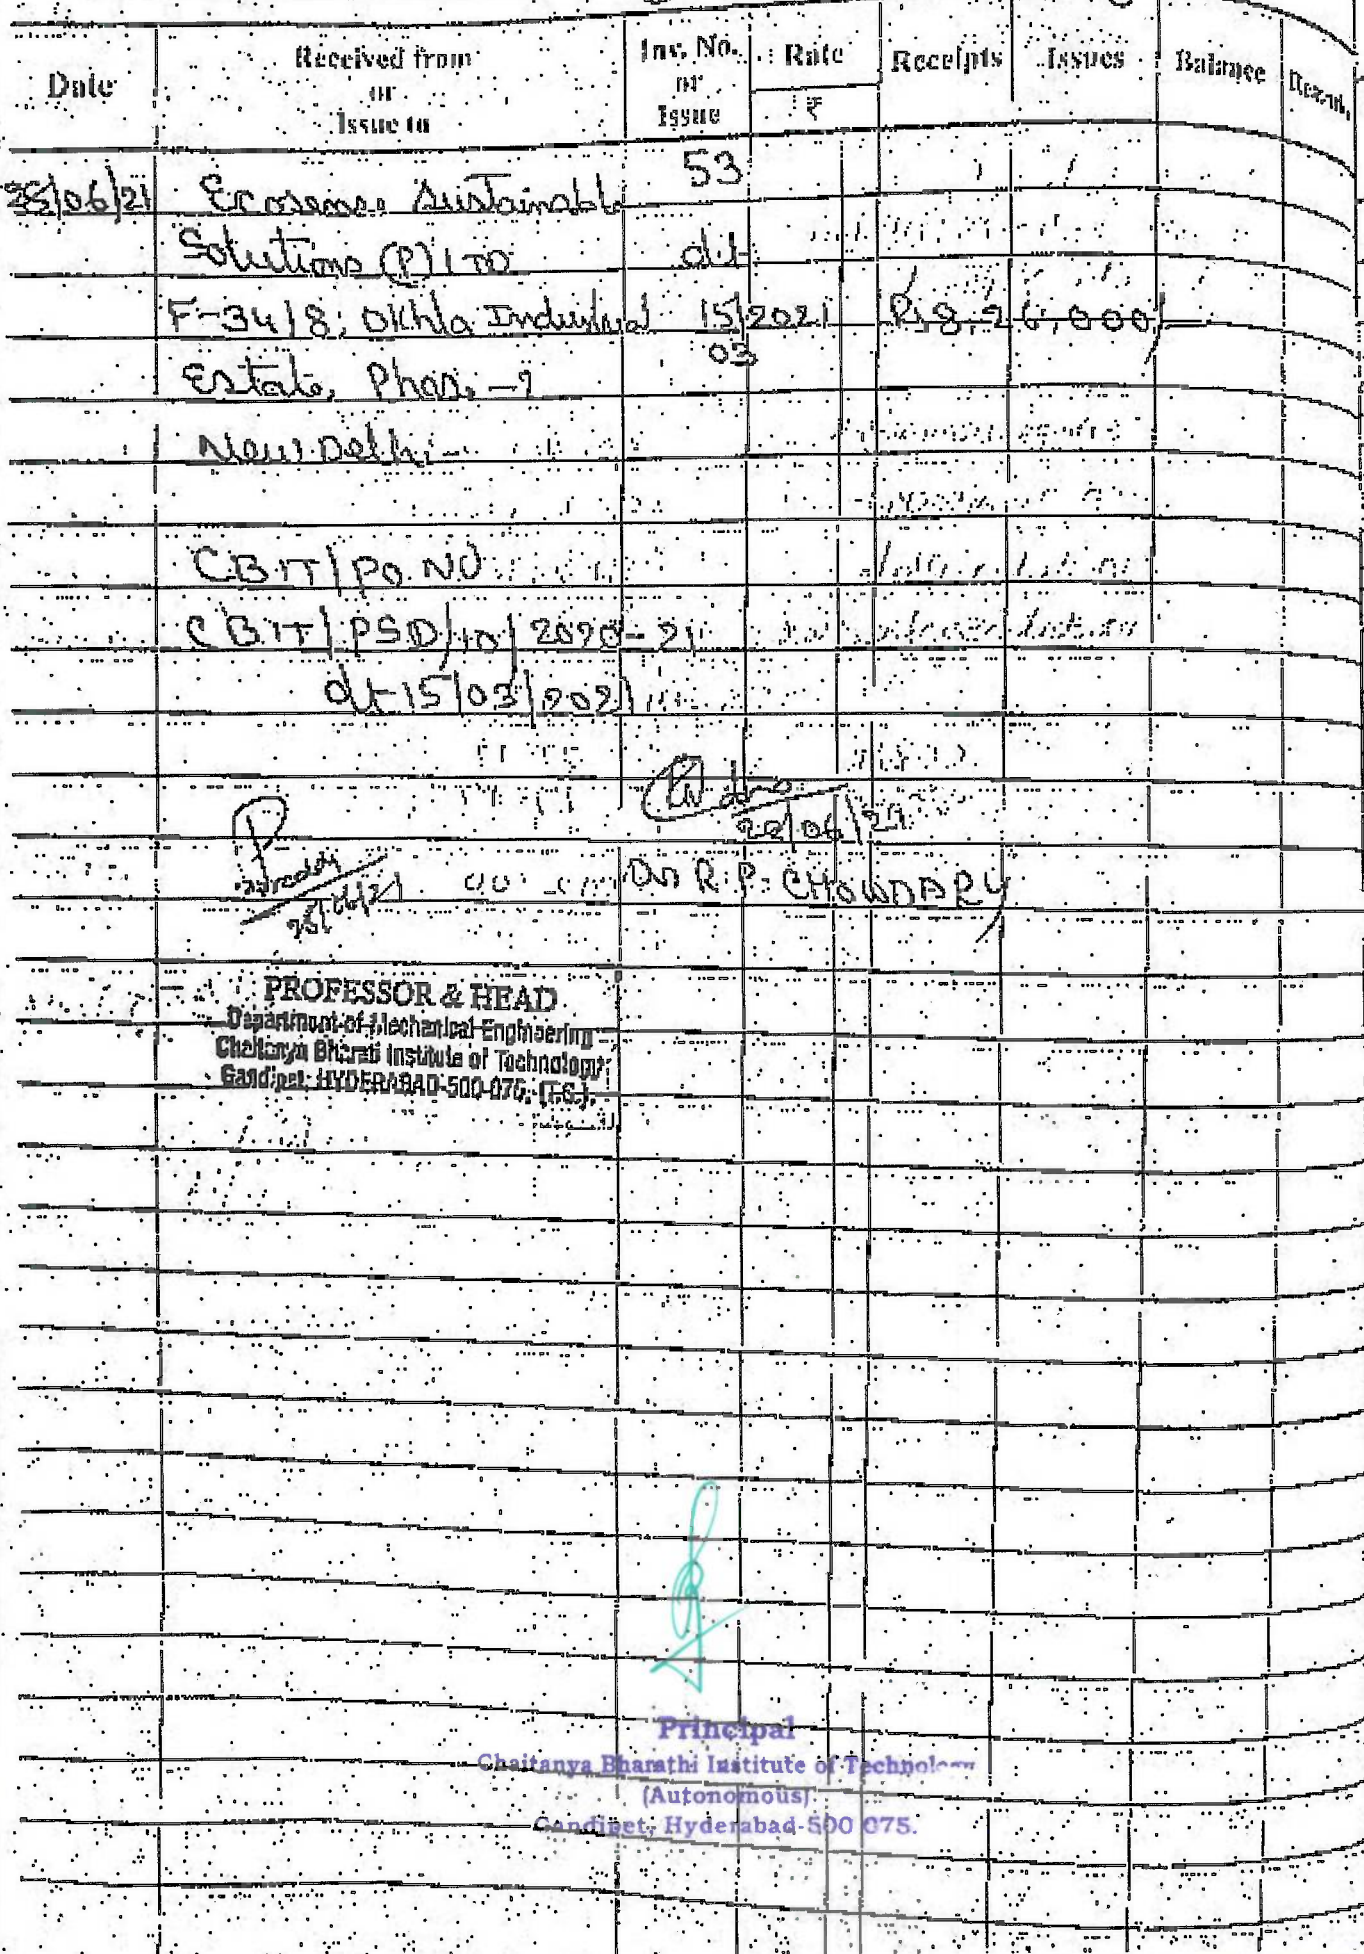 Date Received from or Issue to Inv. No. or Issue Rate ₹ Receipts Issues Balance
/06/21 Ecosense Sustainable 53
Solutions (P) LTD dt
F-34/8, Okhla Industrial 15/2021 Rs 8,26,000/-
03
Estate, Phase -2
New Delhi -
CBIT/PO.NO
CBIT/PSD/10/2020-21
dt 15/03/2021
22/06/21
Dr R.P. CHOWDARY
PROFESSOR & HEAD
Department of Mechanical Engineering
Chaitanya Bharati Institute of Technology
Gandipet, HYDERABAD-500-075. (T.S.).
Principal
Chaitanya Bharathi Institute of Technology
(Autonomous)
Gandipet, Hyderabad-500 075.